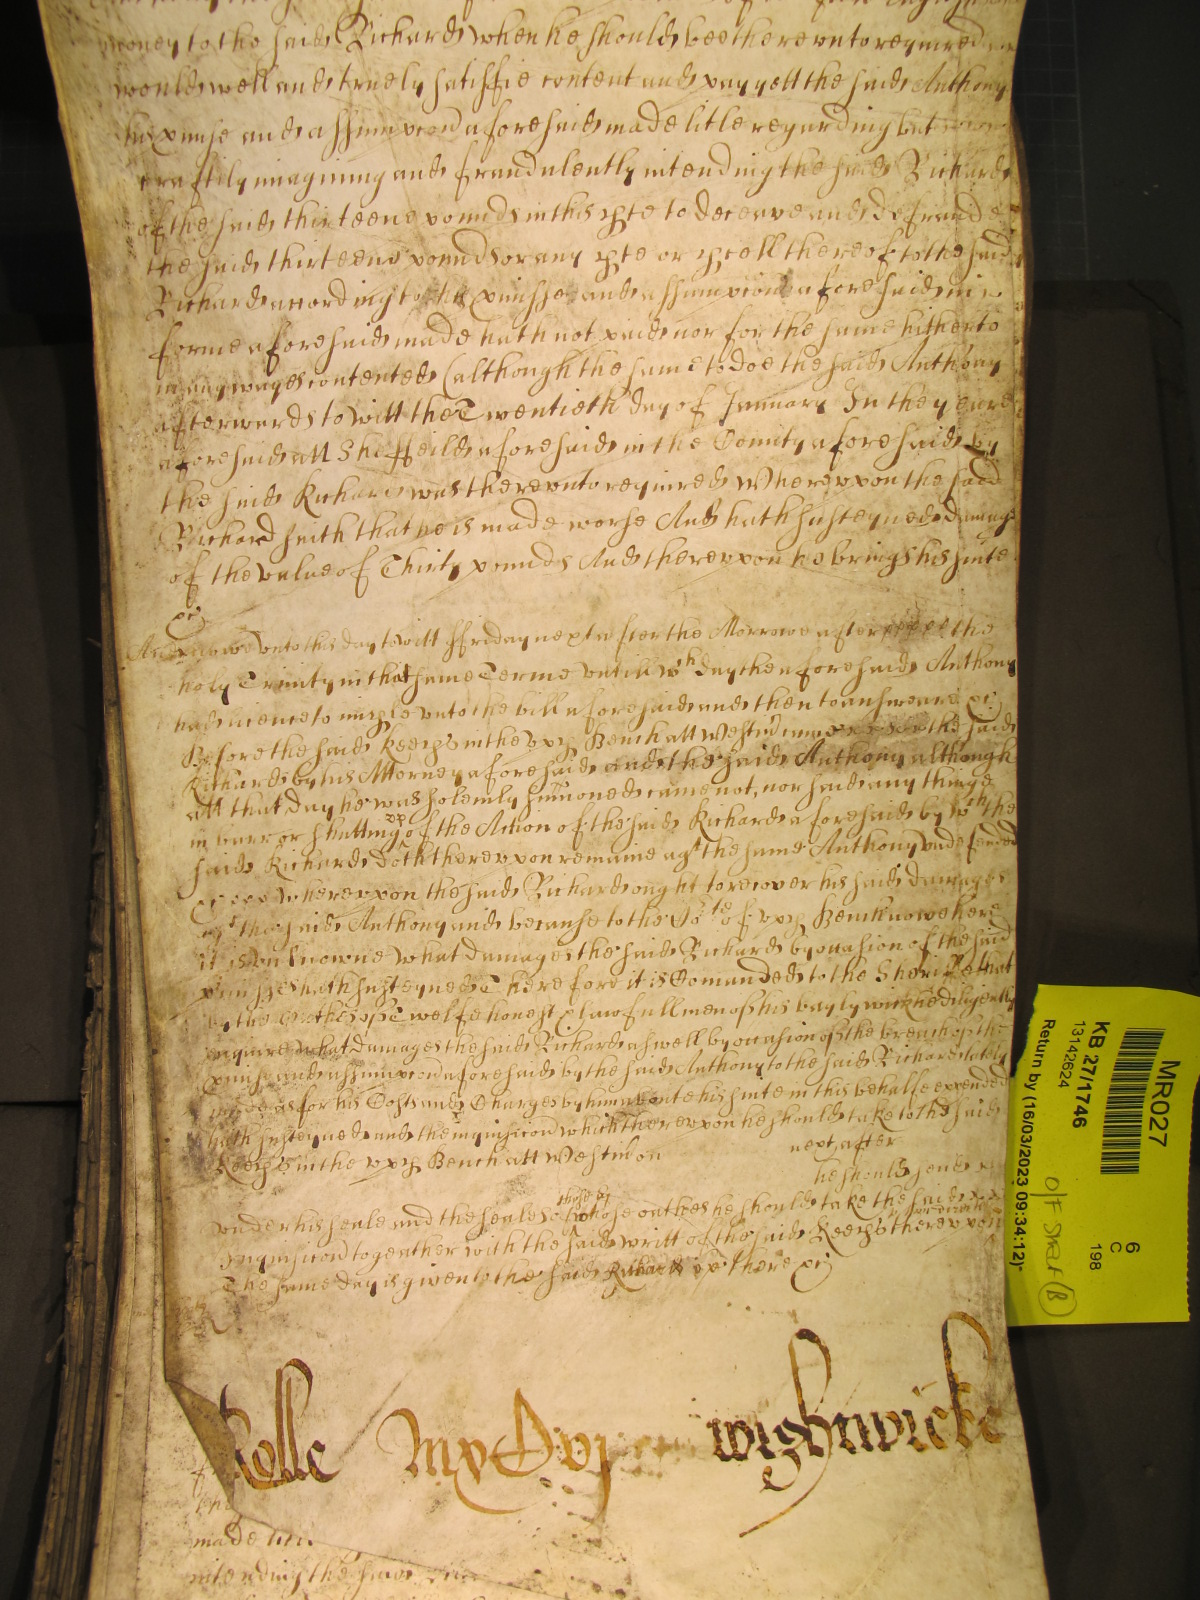 money to the said Richard when he should bee therevnto required
would well and truely satisfie content and pay yett the said Anthony
his pmise and assumpcion aforesaid made litle regarding but
craftily imagining and fraudulently intending the said Richard
of the said thirteene pounds in this pte to deceave and defraude
the said thirteene pounds or any pte or pcell thereof to the said
Richard according to his pmisse and assumpcion aforesaid in
forme aforesaid made hath not paid nor for the same hitherto
in any wayes contented (although the same to doe the said Anthony
afterwards to witt the Twentieth day of January In the yeare
aforesaid att Sheffeild aforesaid in the County aforesaid by
the said Richard was therevnto required Wherevpon the said
Richard saith that he is made worse And hath susteyned damage
of the value of Thirty pounds And therevpon he brings his suite
&c
And nowe vnto this day to witt ffriday next after the Morrowe after the
holy Trinity in that same Terme vntill wch day the aforesaid Anthony
had licence to imple vnto the bill aforesaid and then to answeare &c
Before the said Keeps in the vpp Bench att Westm came the said
Richard by his Attorney aforesaid and the said Anthony although
att that day he was solemly sumoned came not, nor said any thinge
in barr or shutting vp of the Action of the said Richard aforesaid by wch the
said Richard doth therevpon remaine agt the same Anthony vndefended
Wherevpon the said Richard ought to recover his said damages
agt the said Anthony and because to the Jotes of vpp Bench nowe here
it is vnknowne what damages the said Richard by occasion of the said
pmisses hath susteyned Therefore it is Comanded to the Sheriffe that
by the oathes of Twelfe honest & lawfull men of his baylywick he diligently
inquire what damages the said Richard aswell by occasion of the breach of the
pmise and assumpcion aforesaid by the said Anthony to the said Richard lately
made as for his Costs and Charges by him about his suite in this behalfe expended
hath susteyned and the inquisicion which therevpon he should take to the said
Keeps in the vpp Bench att Westm on next after
he should send
vnder his seale and the seales of those by whose oathes he should take the said
Inquisicion togeather with the said writt of the said Keeps therevpon
The same day is given to the said Richard there &c
Rolle MXVI wightwicke
made
intending the same
MR027
KB 27/1746
13142624
Return by (16/03/2023 09:34:12)
6
C
198
O/F Shelf (B)